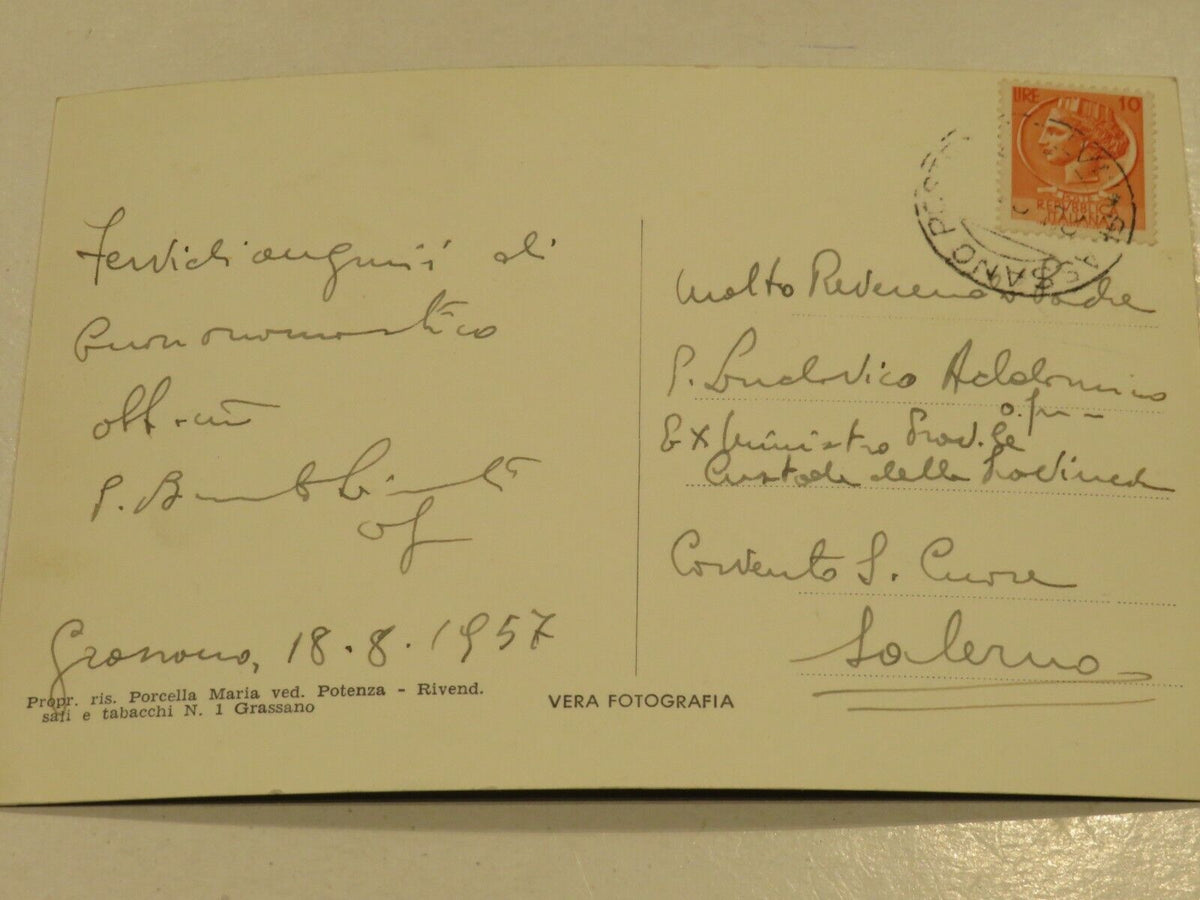 LIRE 10
REPUBBLICA
ITALIANA
Fervidi auguri di
buon onomastico
P.
Grassano, 18.8.1957
Propr. ris. Porcella Maria ved. Potenza - Rivend.
sali e tabacchi N. 1 Grassano
VERA FOTOGRAFIA
Molto Reverendo Padre
P. Ludovico
Ex Ministro Prov.le
Custode della Provincia
Convento S. Cuore
Salerno